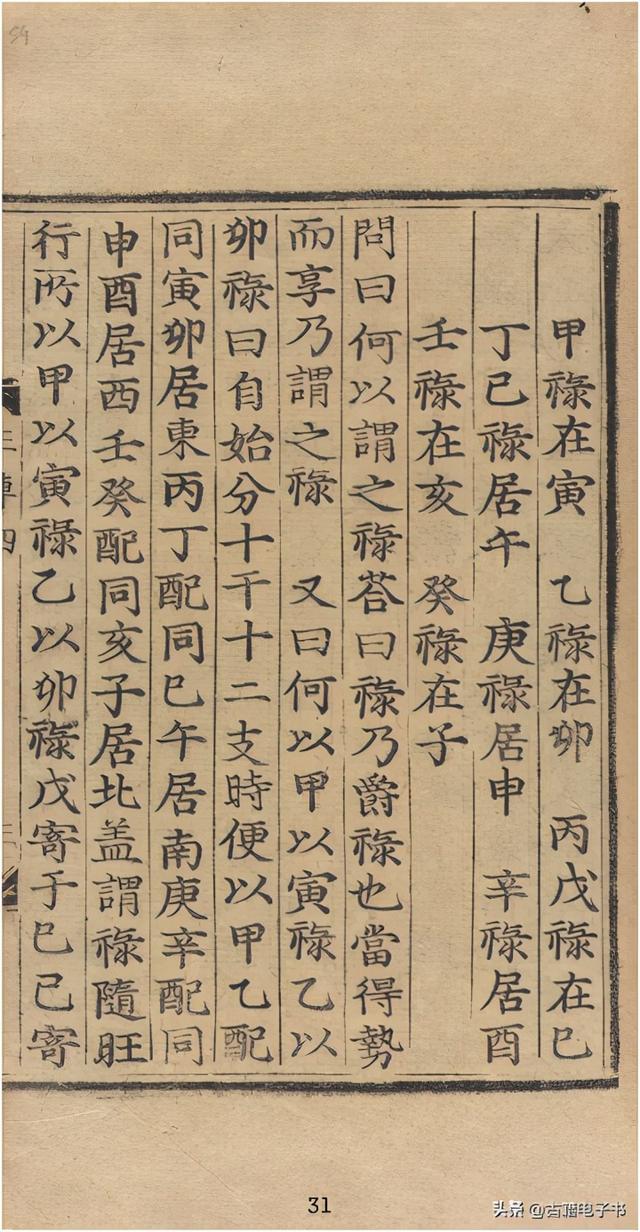 甲祿在寅　乙祿在卯　丙戊祿在巳
丁己祿居午　庚祿居申　辛祿居酉
壬祿在亥　癸祿在子
問曰何以謂之祿荅曰祿乃爵祿也當得勢
而享乃謂之祿　又曰何以甲以寅祿乙以
卯祿曰自始分十干十二支時便以甲乙配
同寅卯居東丙丁配同巳午居南庚辛配同
申酉居西壬癸配同亥子居北盖謂祿隨旺
行所以甲以寅祿乙以卯祿戊寄于巳己寄
31
头条@古籍电子书